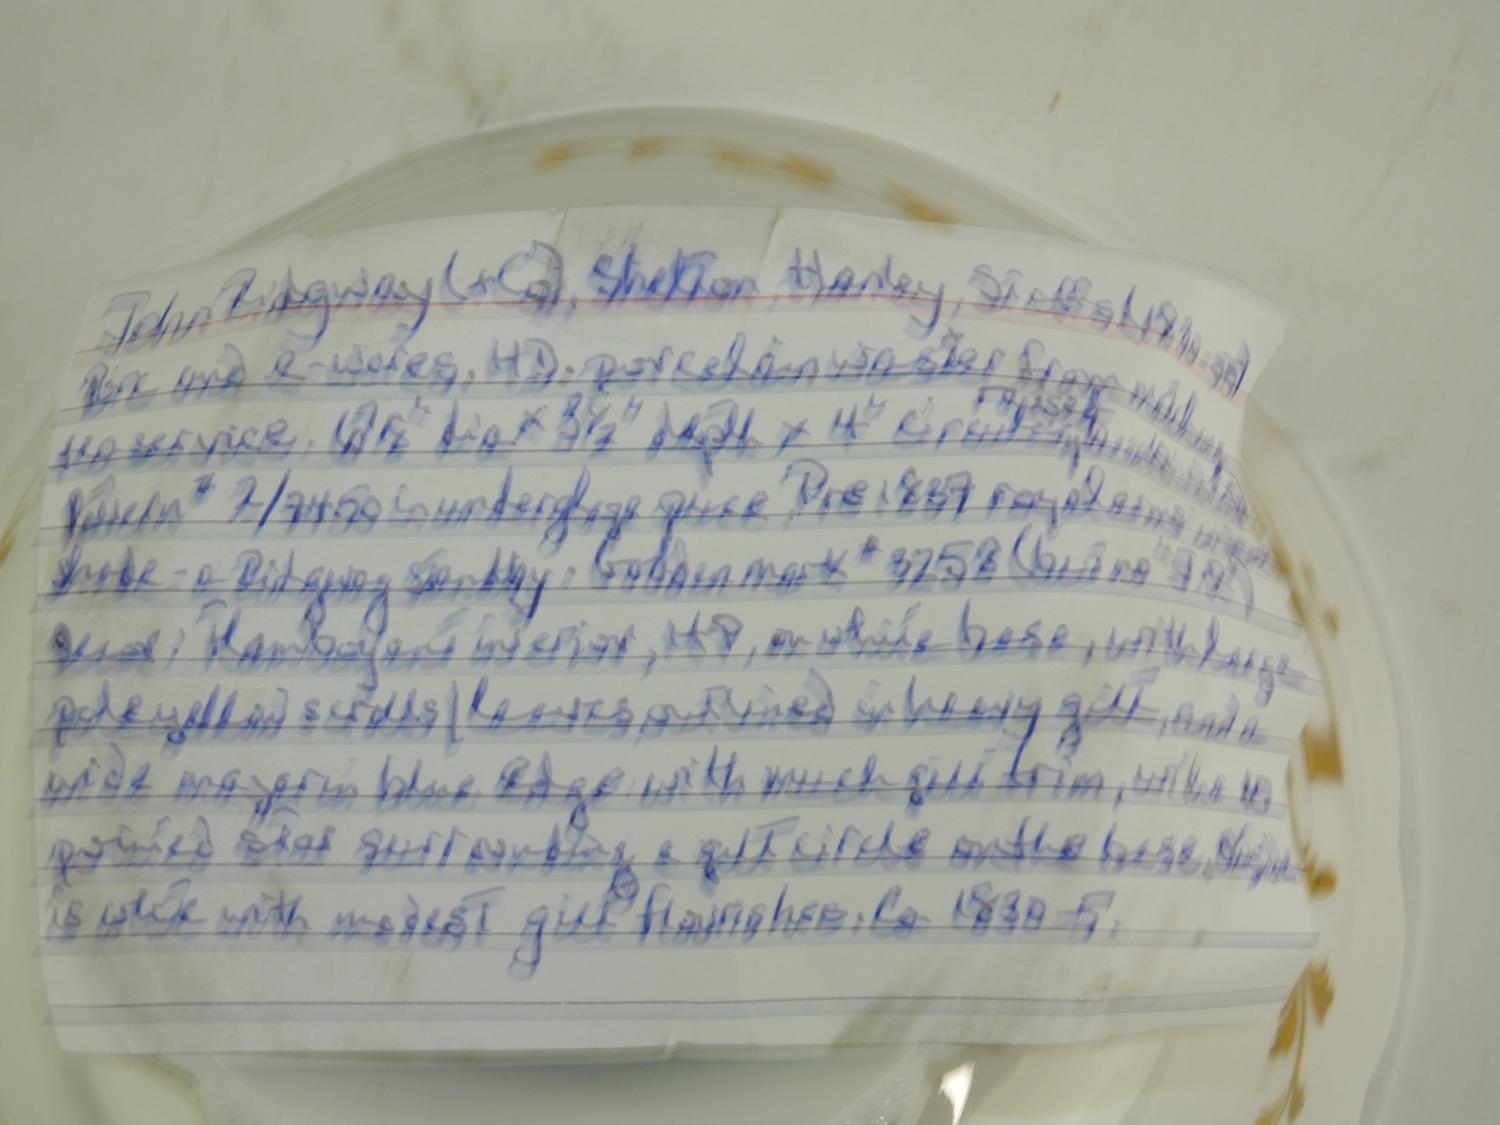 John Ridgway (+Co), Shelton, Hanley, Staffs (1830-55)
Porc and e-wares. HD. porcelain waster from
teaservice. dia x 3½" depth x 4"
raised
Pattern # 2/7450 in underglaze puce. Pre 1837 royal arms
- a Ridgway Godden mark # 3258
Decor: Flamboyant interior, HP, on white base, with large
pale yellow scrolls/leaves, outlined in heavy gilt, and a
wide mazarin blue edge with much gilt trim, with a 10
pointed star surrounding a gilt circle on the base.
is white with modest gilt flourishes. Ca 1830-5.